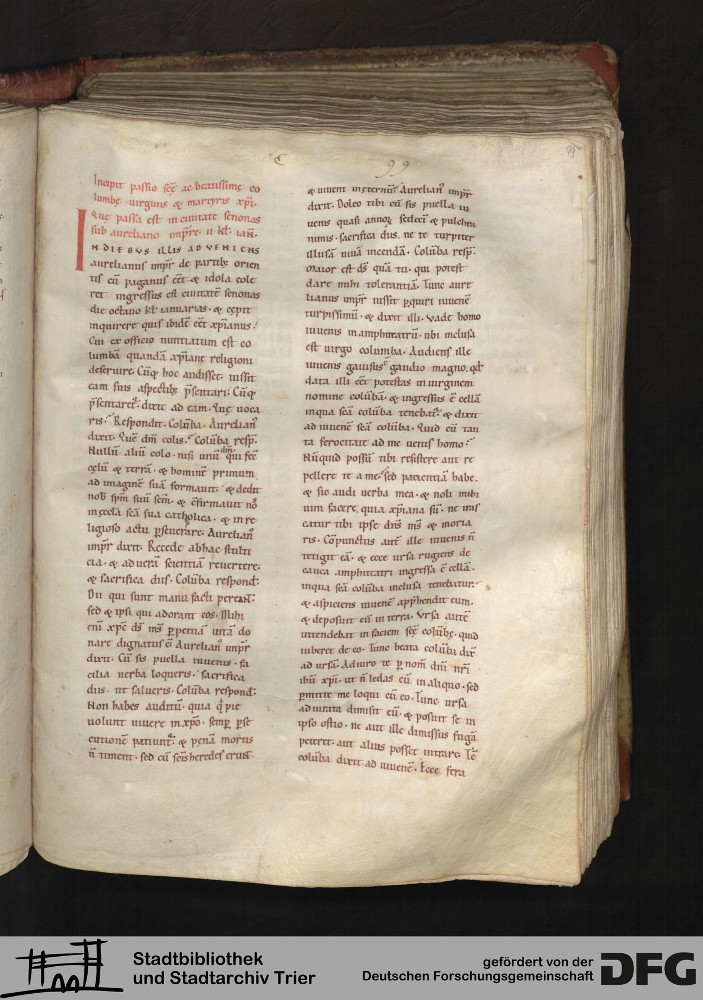 C 99
99
Incipit passio scę ac beatissimę co
lumbę uirginis & martyris xpi.
Quę passa est in ciuitate senonas
sub aureliano impre. ii kl ian.
IN DIEBVS ILLIS ADVENIENS
aurelianus impr de partib; orien
tis cū paganus eēt & idola cole
ret ingressus est ciuitatē senonas
die octauo kl ianuarias. & cępit
inquirere quis ibidē eēt xpianus.
Cui ex officio nuntiatum est co
lumbā quandā xpianę religioni
deseruire. Cūq; hoc audisset. iussit
eam suis aspectib; p̄sentari. Cūq;
p̄sentaret. dixit ad eam. Quę uoca
ris. Respondit. Colūba. Aurelian'
dixit. Quē dm̄ colis. Colūba resp̄.
Nullū aliū colo. nisi unū dm̄ qui fec
cęlū & terrā. & hominē primum
ad imaginē suā formauit. & dedit
nob spm suū scm̄. & c̄firmauit nos
in eccla scā sua catholica. & in re
ligioso actu p̄seuerare. Aurelian'
impr dixit. Recede ab hac stulti
cia. & ad uerā scientiā reuertere.
& sacrifica diis. Colūba respond.
Dii qui sunt manu facti pereant.
sed & ipsi qui adorant eos. Mihi
enī xpc ds ms p̄petuā uitā do
nare dignatus ē. Aurelian' impr
dixit. Cū sis puella iuuenis. fa
cilia uerba loqueris. sacrifica
diis. ut salueris. Colūba respond.
Non habes auditū. quia q pie
uolunt uiuere in xpo. semp p̄se
cutionē patiunt'. & pęnā mortis
n̄ timent. sed cū scis heredes erunt.
& uiuent in ęternū. Aurelian' impr
dixit. Doleo tibi cū sis puella iu
uenis quasi annoꝝ sedecī & pulchra
nimis. sacrifica diis. ne te turpiter
illusā uiuā incendā. Colūba resp̄.
Maior est ds quā tu. qui potest
dare mihi tolerantiā. Tunc aure
lianus impr iussit p̄quiri iuuenē
turpissimū. & dixit illi. Vade homo
iuuenis in amphiteatrū. ubi inclusa
est uirgo columba. Audiens ille
iuuenis gauisus ē gaudio magno. qd
data illi eēt potestas in uirginem
nomine colūbā. & ingressus ē cellā
in qua scā colūba tenebat'. & dixit
ad iuuenē scā colūba. Quid cū tan
ta ferocitate ad me uenis homo.
Nūquid possū tibi resistere aut re
pellere te a me. sed pacientiā habe.
& sic audi uerba mea. & noli mihi
uim facere. quia xpiana sū. ne iras
catur tibi ipse dns ms & moria
ris. Cōpunctus autē ille iuuenis n̄
tetigit eā. & ecce ursa rugiens de
cauea amphitatri ingressa ē cellā.
in qua scā colūba inclusa tenebatur.
& aspiciens iuuenē app̄hendit eum.
& deposuit eū in terra. Vrsa autē
intendebat in faciem scę colūbę. quid
iuberet de eo. Tunc beata colūba dix
ad ursā. Adiuro te p nom̄ dni nri
ihū xpi. ut n̄ ledas eū in aliquo. sed
p̄mitte me loqui cū eo. Tunc ursa
admirata dimisit eū. & posuit se in
ipso ostio. ne aut ille dimissus fugā
peteret. aut alius posset intrare. Tc̄
colūba dixit ad iuuenē. Ecce fera
Stadtbibliothek
und Stadtarchiv Trier
gefördert von der
Deutschen Forschungsgemeinschaft
DFG